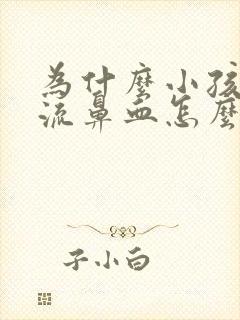 为什麼小孩
流鼻血怎麼
子小白